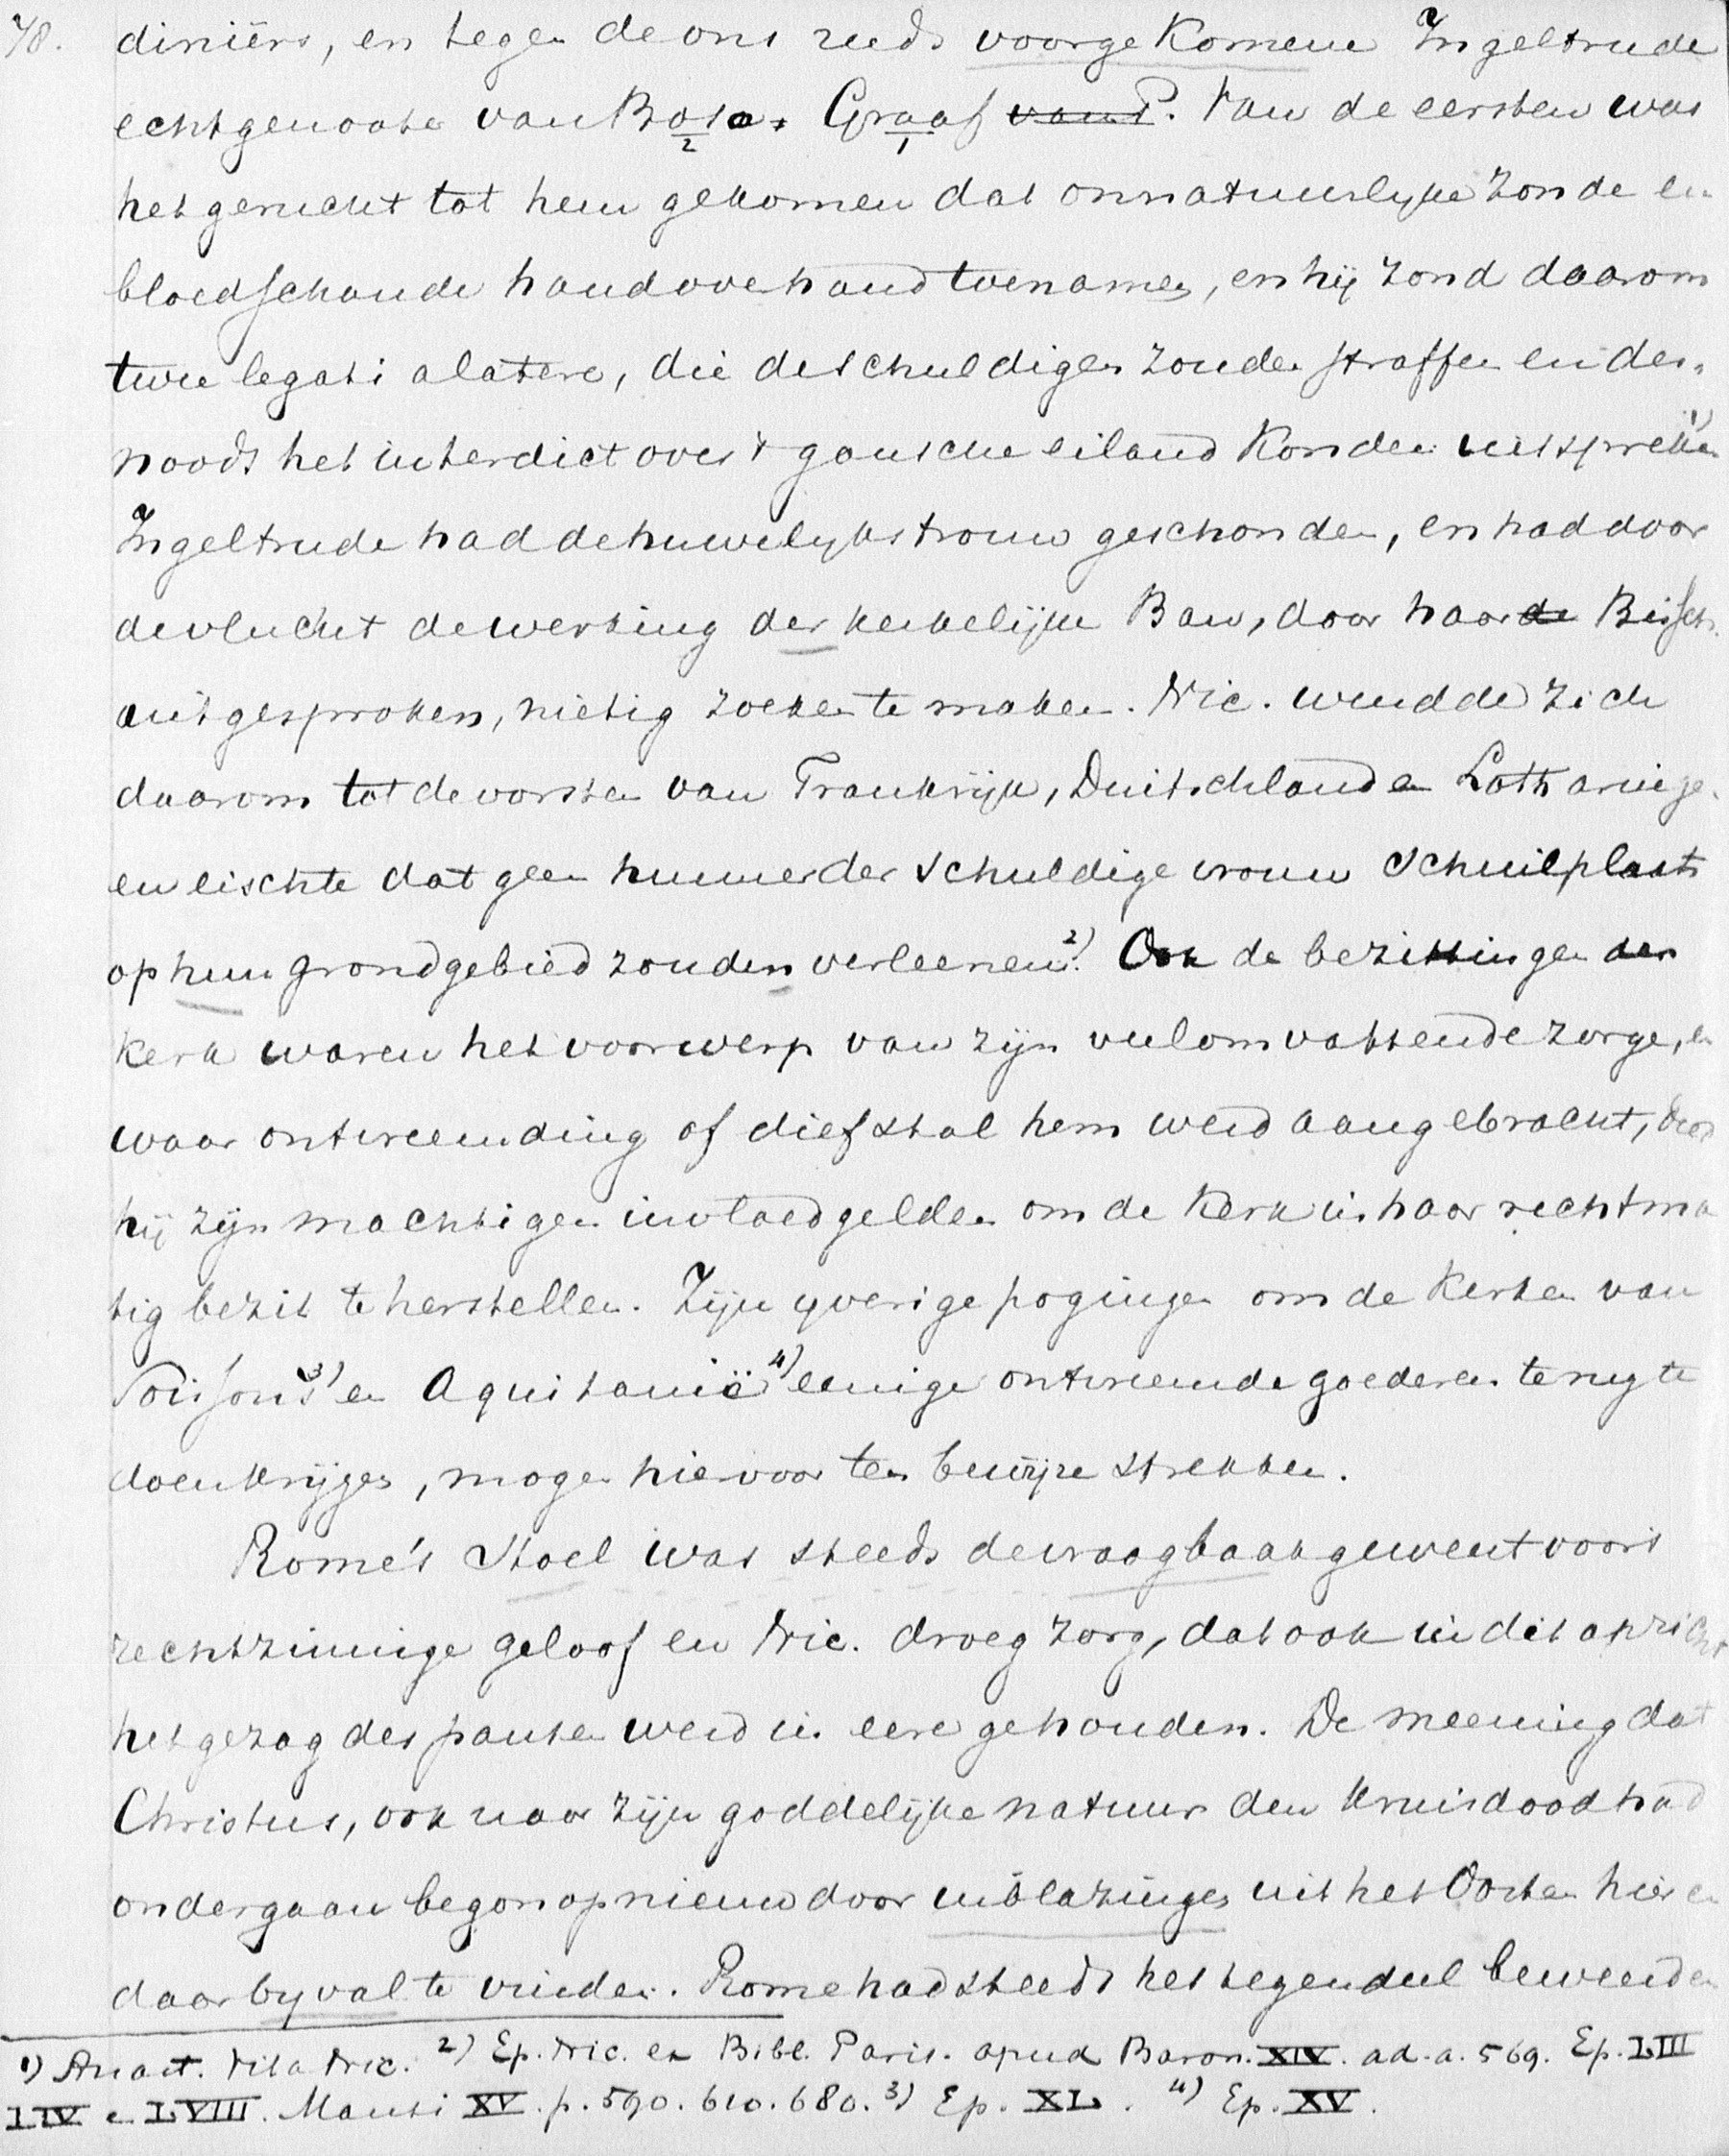 78. diniërs, en tegen de ons reeds voorgekomene Ingeltrude
echtgenoote van Boso. Graaf van P. Van de eersten was
het gerucht tot hem gekomen dat onnatuurlyke zonde en
bloedschande hand over hand toenamen, en hij zond daarom
twee legati a latere, die de schuldigen zouden straffen en des-
noods het interdict over 't gansche eiland konden uitspreken 1)
Ingeltrude had de huwelykstrouw geschonden, en had door
de vlucht de werking der kerkelijke Ban, door haar de Bissch.
uitgesproken, nietig zoeken te maken. Nic. wendde zich
daarom tot de vorsten van Frankrijk, Duitschland en Lotharinge.
en eischte dat geen hunner der schuldige vrouw schuilplaats
op hun grondgebied zouden verleenen. 2) Ook de bezittingen der
kerk waren het voorwerp van zijn veelomvattende zorge, en
waar ontvreemding of diefstal hem werd aangebracht, deed
hij zijn machtigen invloed gelden om de Kerk in haar rechtma
tig bezit te herstellen. Zijn yverige pogingen om de Kerken van
Soissons 3) en Aquitanië 4) eenige ontvreemde goederen terug te
doen krijgen, mogen hiervoor ten bewijze strekken.
Rome's Stoel was steeds de vraagbaak geweest voor 't
rechtzinnige geloof en Nic. droeg zorg, dat ook in dit opzicht
het gezag des pausen werd in eere gehouden. De meening dat
Christus, ook naar zijn goddelijke natuur den kruisdood had
ondergaan begon op nieuw door inblazingen uit het Oosten hier en
daar byval te vinden. Rome had steeds het tegendeel beweerd en
1) Anast. Vita Nic. 2) Ep. Nic. ex Bibl. Paris. apud Baron. XIV. ad. a. 569. Ep. LIII
LIV en LVIII. Mansi XV. p. 590. 610. 680. 3) Ep. XL. 4) Ep. XV.